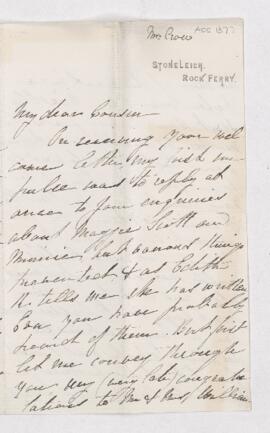 Mrs Crow
ACC 1377
STONELEIGH,
ROCK FERRY.
My dear Cousin
On receiving your wel
come letter my first im
pulse was to reply at
once to your enquiries
about Maggie Scott and
Minnie but various things
prevented & as Edith
tells me she has written
you you have probably
heard of them. But first
let me convey through
you my (very late) congratu
lations to Mr & Mrs William